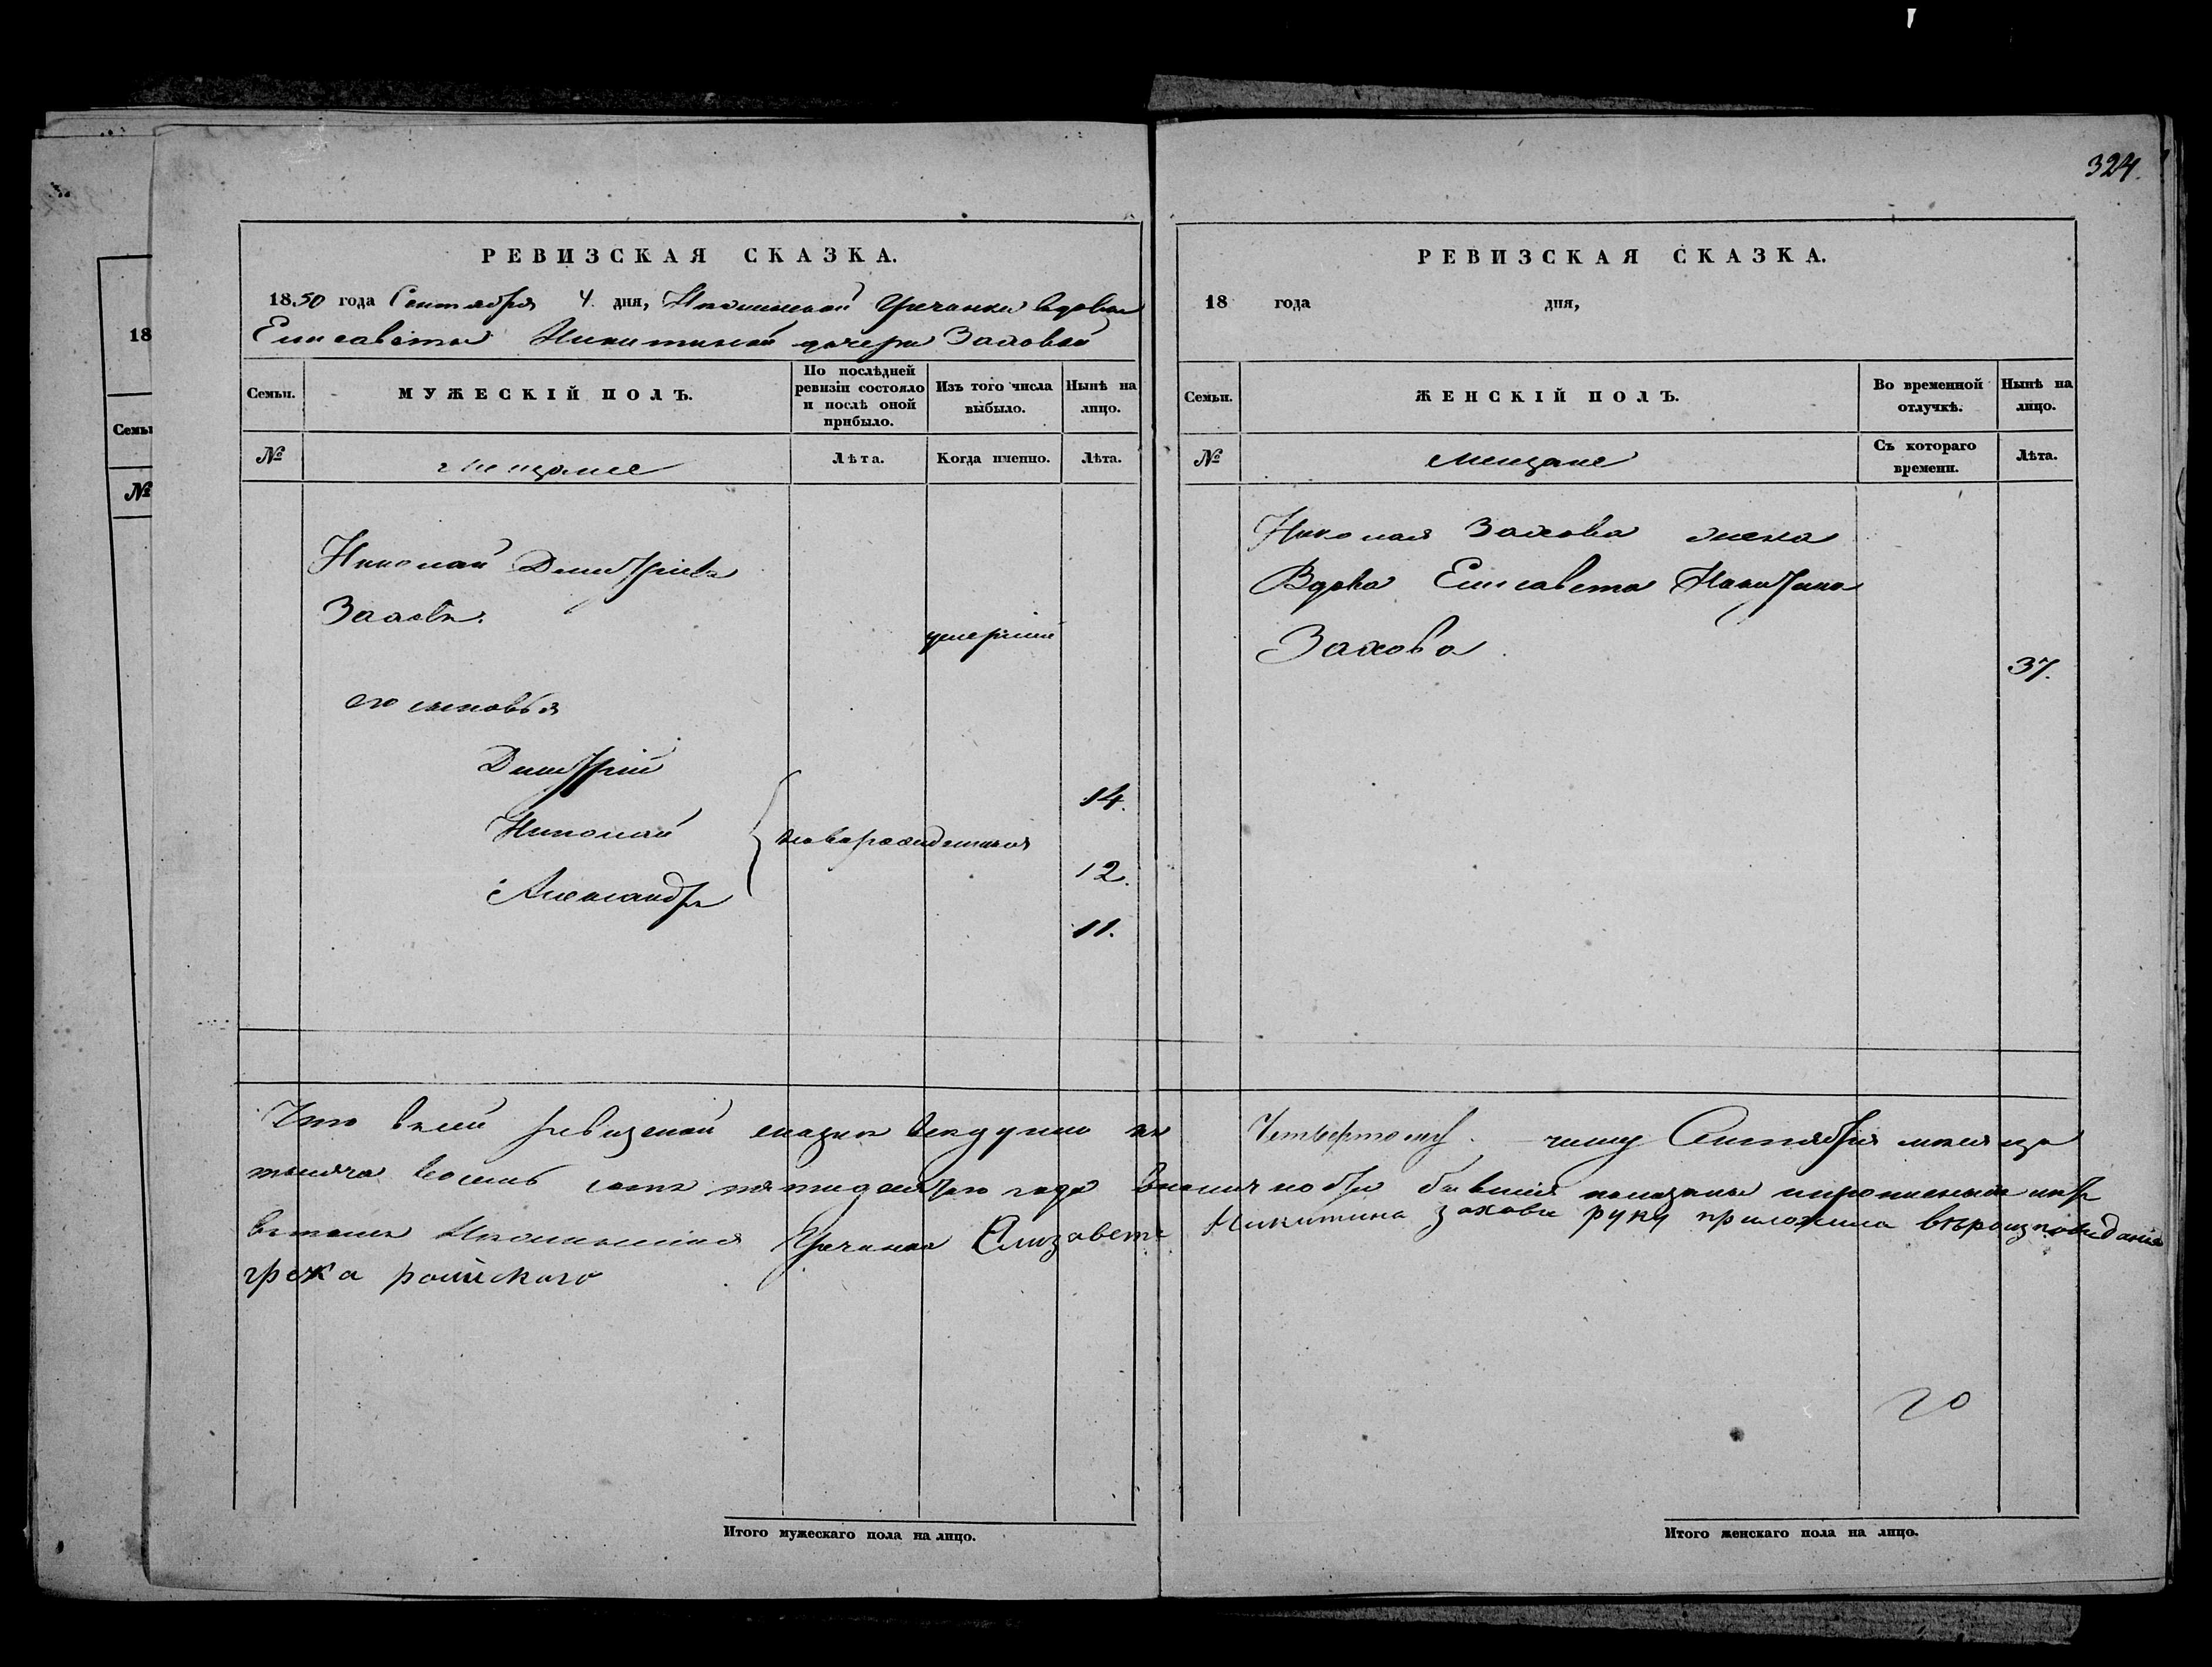 324.
РЕВИЗСКАЯ СКАЗКА.
1850 года Сентября 4 дня, Гречанки вдовы
Елисаветы Никитиной дочери Заховой
Семьи.
МУЖЕСКІЙ ПОЛЪ.
По послѣдней ревизіи состояло и послѣ оной прибыло.
Изъ того числа выбыло.
Нынѣ на лицо.
№
мещане
Лѣта.
Когда именно.
Лѣта.
Николай Дмитріевъ
Заховъ.
умерший
его сыновья
Дмитрій
14.
Николай
новорожденныя
12.
Александръ
11.
РЕВИЗСКАЯ СКАЗКА.
18 года дня,
Семьи.
ЖЕНСКІЙ ПОЛЪ.
Во временной отлучкѣ.
Нынѣ на лицо.
№
мещане
Съ котораго времени.
Лѣта.
Николая Захова жена
Вдова Елисавета Никитина
Захова
37.
Что въ сей ревизской сказки къ Четвертому числу Сентября месяца
тысяча восемь сотъ пятидесятого года бывшия показаны
въ томъ Гречанка Елизавета Никитина захова руку приложила
грека
20
Итого мужескаго пола на лицо.
Итого женскаго пола на лицо.
18
Семьи
№